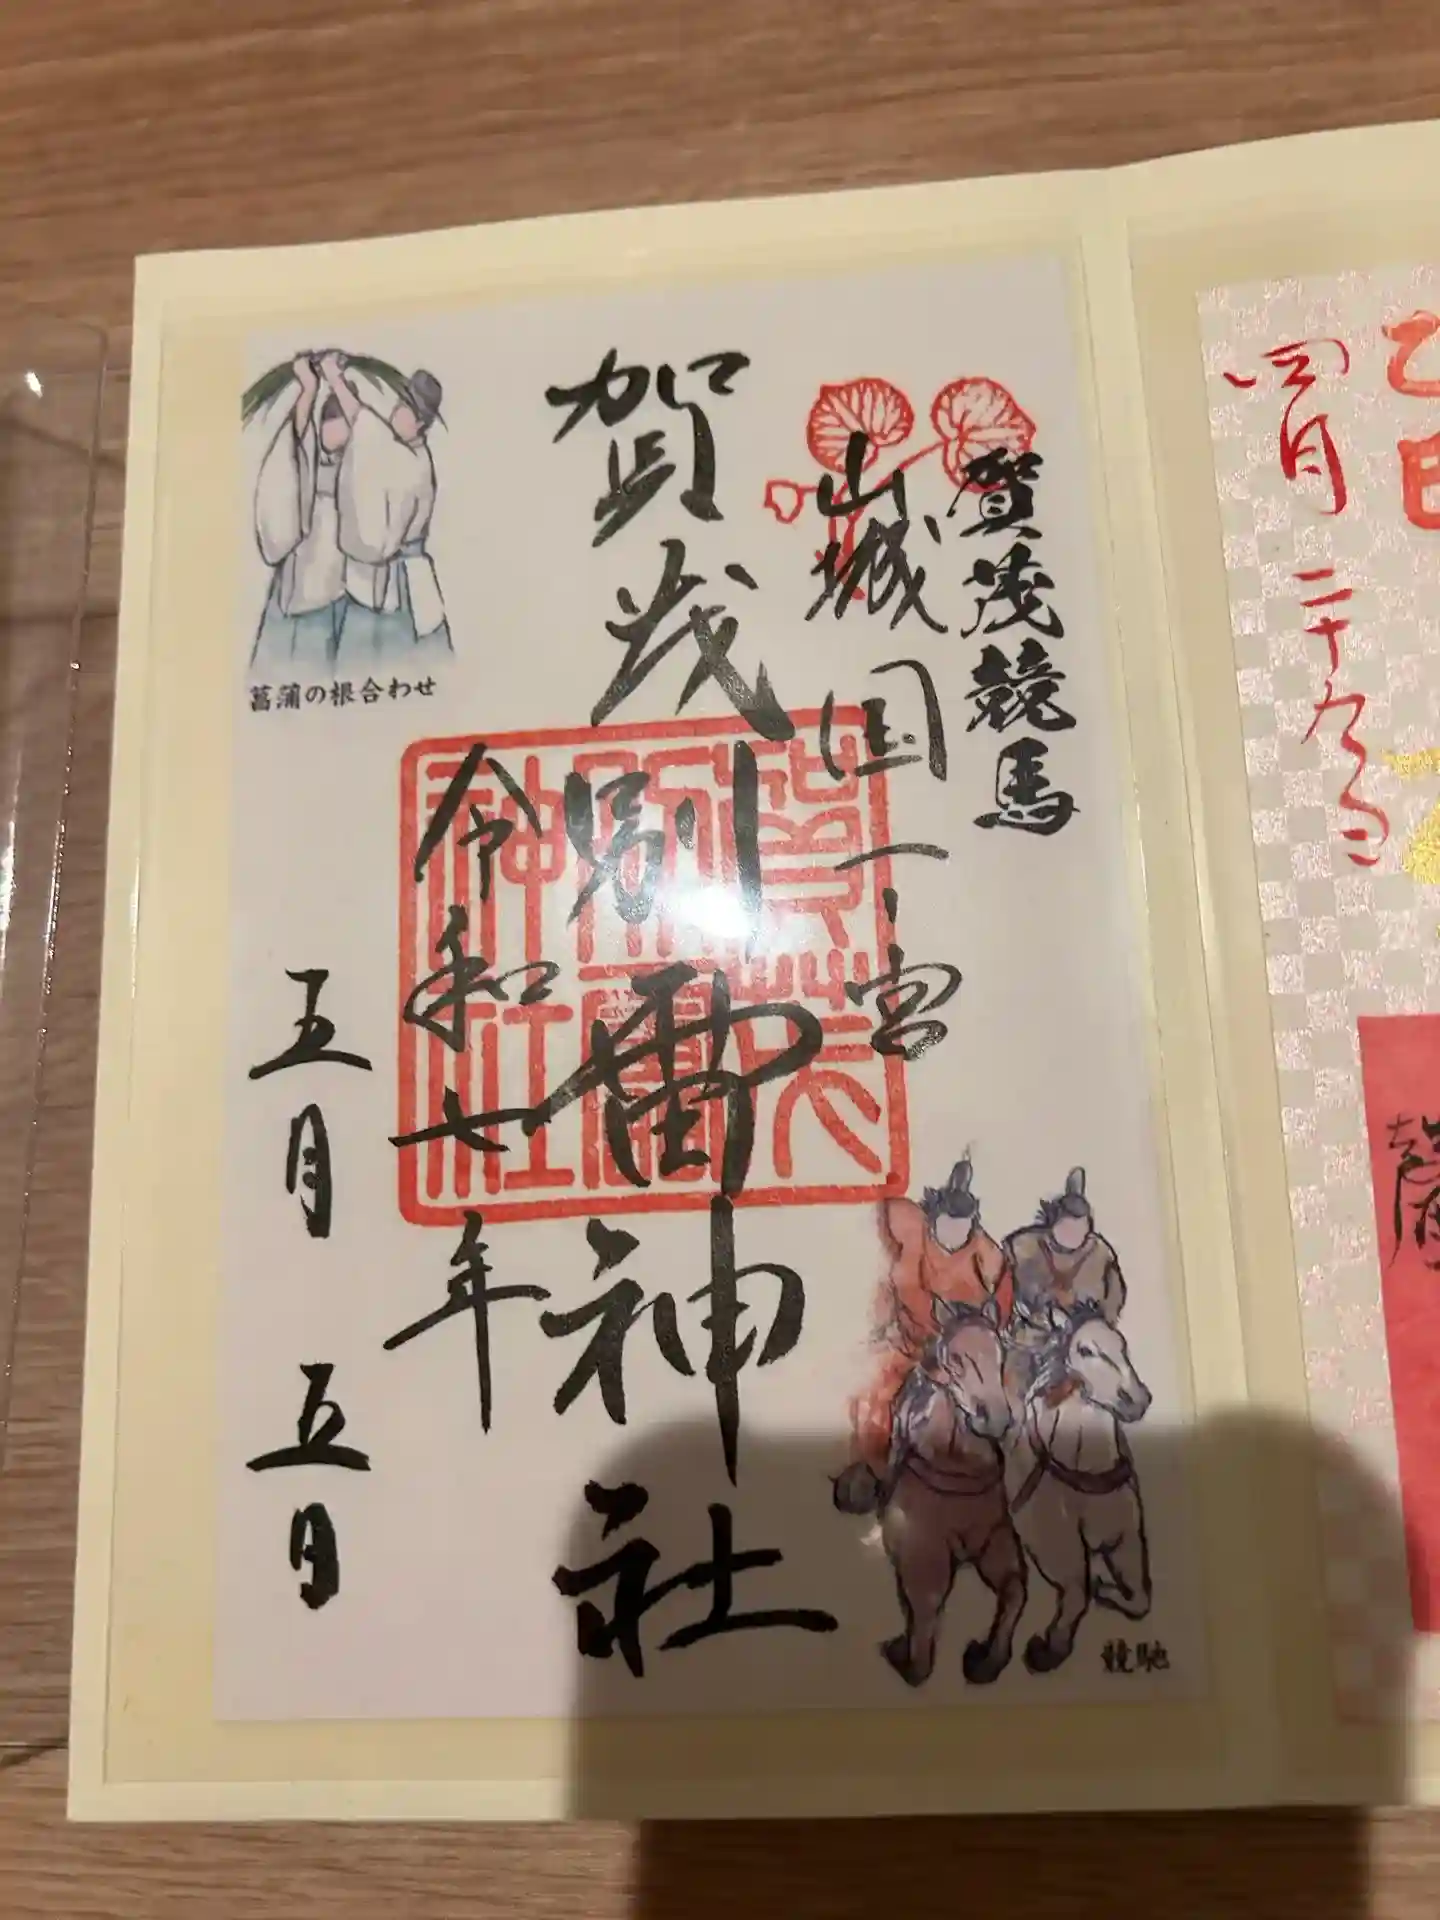 乙巳
四月二十九日
賀茂競馬
山城国一ノ宮
賀茂別雷神社
賀茂
別雷
神社
令和七年
五月五日
菖蒲の根合わせ
競馳